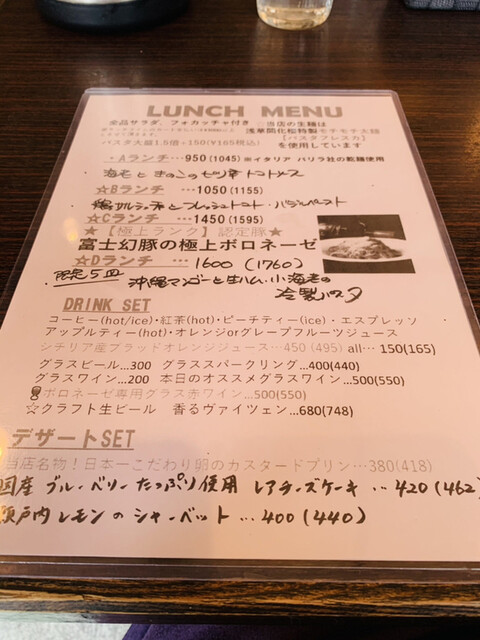 LUNCH MENU
全品サラダ、フォカッチャ付き ☆当店の生麺は
浅草開化楼特製モチモチ太麺
パスタ大盛1.5倍+150(¥165税込) 【パスタフレスカ】
を使用しています
・Aランチ…950(1045) ※イタリア バリラ社の乾麺使用
海老ときのこの トマトソース
☆Bランチ …1050(1155)
フレッシュトマト・バジルペースト
☆Cランチ …1450(1595)
★【極上ランク】認定豚★
富士幻豚の極上ボロネーゼ
☆Dランチ … 1600(1760)
限定5皿 沖縄マンゴーと生ハム、小海老の
冷製パスタ
DRINK SET
コーヒー(hot/ice)・紅茶(hot)・ピーチティー(ice)・エスプレッソ
アップルティー(hot)・オレンジorグレープフルーツジュース
シチリア産ブラッドオレンジジュース…450(495) all… 150(165)
グラスビール…300 グラススパークリング…400(440)
グラスワイン…200 本日のオススメグラスワイン…500(550)
ボロネーゼ専用グラス赤ワイン…500(550)
☆クラフト生ビール 香るヴァイツェン…680(748)
デザートSET
当店名物!日本一こだわり卵のカスタードプリン…380(418)
国産 ブルーベリー たっぷり使用 レアチーズケーキ …420(462)
瀬戸内レモンのシャーベット …400(440)